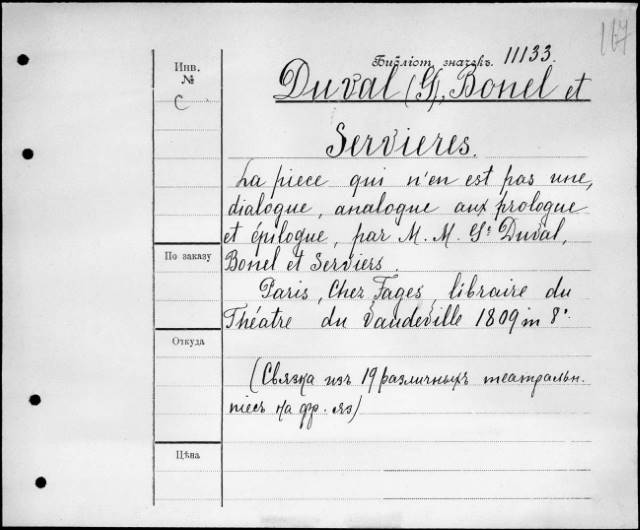 167
Библіот. значекъ. 11133.
Инв.
№
C
Duval (G), Bonel et
Servieres.
La piece qui n'en est pas une,
dialogue, analogue aux prologue
et épilogue, par M. M. Gs Duval,
Bonel et Serviers.
По заказу
Paris, Chez Fages, libraire du
Théatre du Vaudeville 1809 in 8°.
Откуда
(Связка изъ 19 различныхъ театральн.
піесъ на фр. яз)
Цѣна